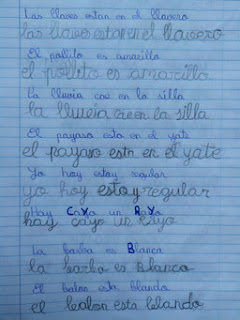 Las llaves estan en el llavero
las llaves estan en el llavero
El pollito es amarillo
el pollito es amarillo
La lluvia cae en la silla
la lluvia cae en la silla
El payaso esta en el yate
el payaso esta en el yate
Yo hoy estoy regular
yo hoy estoy regular
Hay CaYo un RaYo
hay cayo un rayo
La barba es Blanca
la barba es Blanca
El balon esta blando
el balon esta blando